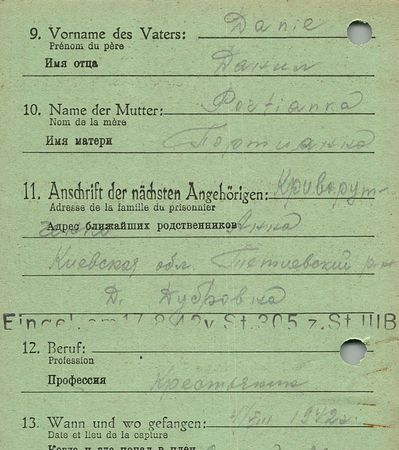 9. Vorname des Vaters: Danie
Prénom du père
Имя отца Данил
10. Name der Mutter: Portianka
Nom de la mère
Имя матери Портианка
11. Anschrift der nächsten Angehörigen: Криворут-
Adresse de la famille du prisonnier
Адрес ближайших родственников Анна
Киевская обл. Тетиевский р-н
Д. Дубровка
12. Beruf:
Profession
Профессия Крестьянин
13. Wann und wo gefangen: 1942
Date et lieu de la capture
Когда и где попал в плен